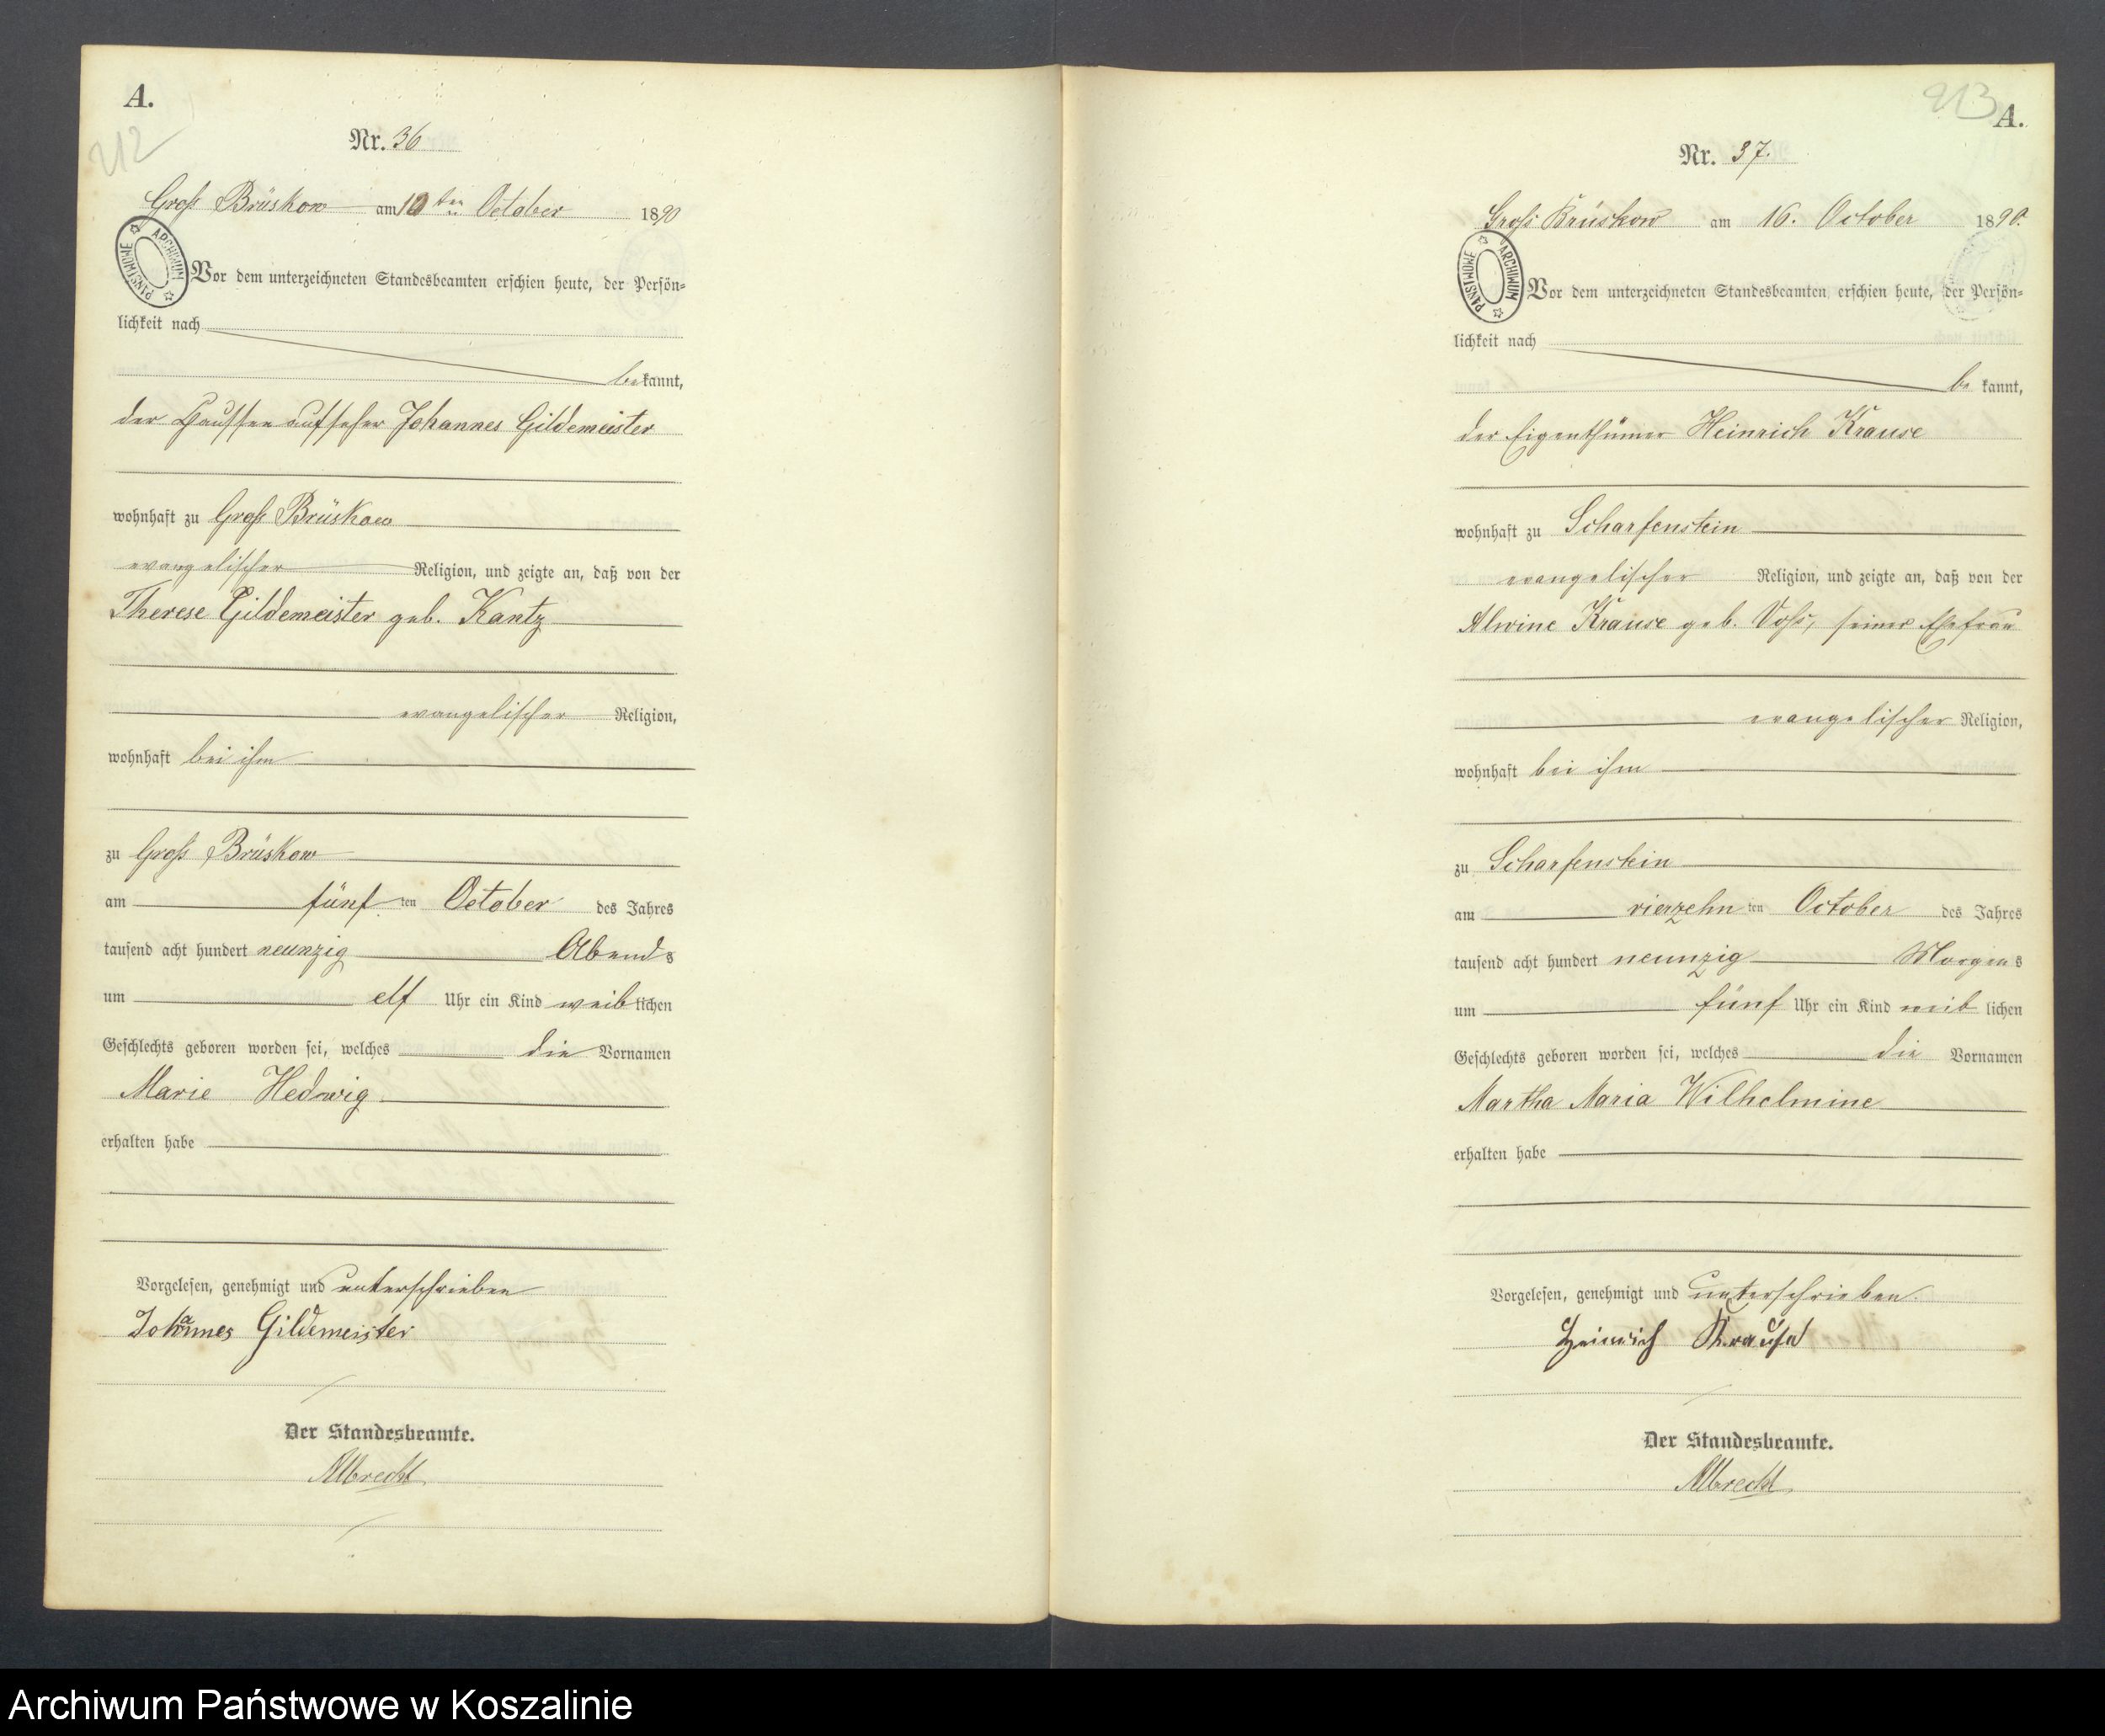 A.
212
Nr. 36
Groß Brüskow am 10ten October 1890
PAŃSTWOWE ARCHIWUM
Vor dem unterzeichneten Standesbeamten erschien heute, der Persön=
lichkeit nach
bekannt,
der Chausseeaufseher Johannes Gildemeister
wohnhaft zu Groß Brüskow
evangelischer Religion, und zeigte an, daß von der
Therese Gildemeister geb. Kantz
evangelischer Religion,
wohnhaft bei ihm
zu Groß Brüskow
am fünften October des Jahres
tausend acht hundert neunzig Abends
um elf Uhr ein Kind weiblichen
Geschlechts geboren worden sei, welches die Vornamen
Marie Hedwig
erhalten habe
Vorgelesen, genehmigt und unterschrieben
Johannes Gildemeister
Der Standesbeamte.
Albrecht
213
A.
Nr. 37.
Groß Brüskow am 16. October 1890.
PAŃSTWOWE ARCHIWUM
Vor dem unterzeichneten Standesbeamten erschien heute, der Persön=
lichkeit nach
bekannt,
der Eigenthümer Heinrich Krause
wohnhaft zu Scharfenstein
evangelischer Religion, und zeigte an, daß von der
Alwine Krause geb. Voß, seiner Ehefrau
evangelischer Religion,
wohnhaft bei ihm
zu Scharfenstein
am vierzehnten October des Jahres
tausend acht hundert neunzig Morgens
um fünf Uhr ein Kind weiblichen
Geschlechts geboren worden sei, welches die Vornamen
Martha Maria Wilhelmine
erhalten habe
Vorgelesen, genehmigt und unterschrieben.
Heinrich Krause
Der Standesbeamte.
Albrecht
Archiwum Państwowe w Koszalinie